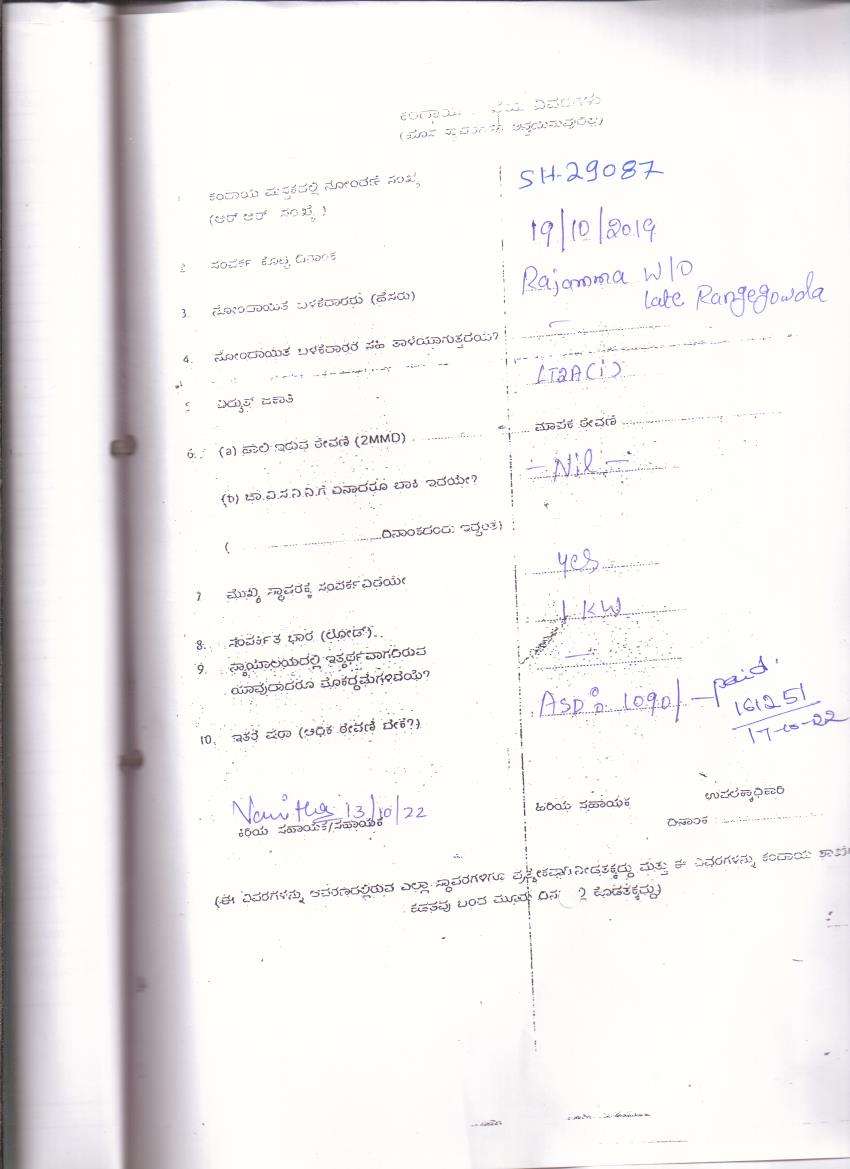 ಕಂದಾಯ ವಿವರಗಳು
1 ಕಂದಾಯ ಪುಸ್ತಕದಲ್ಲಿ ನೋಂದಣಿ ಸಂಖ್ಯೆ SH-29087
(ಆರ್ ಆರ್ ಸಂಖ್ಯೆ)
2 ಸಂಪರ್ಕ ಕೊಟ್ಟ ದಿನಾಂಕ 19/10/2019
3. ನೋಂದಾಯಿತ ಬಳಕೆದಾರರು (ಹೆಸರು) Rajamma W/O
late Rangegowda
4. ನೋಂದಾಯಿತ ಬಳಕೆದಾರರ ಸಹಿ ತಾಳೆಯಾಗುತ್ತದೆಯೆ? —
5 ವಿದ್ಯುತ್ ಜಕಾತಿ LT2A(i)
6. (a) ಹಾಲಿ ಇರುವ ಠೇವಣಿ (2MMD) ಮಾಪಕ ಠೇವಣಿ
(b) ಚಾ.ವಿ.ಸ.ನಿ.ನಿ.ಗೆ ಏನಾದರೂ ಬಾಕಿ ಇದೆಯೇ? — Nil —
( ದಿನಾಂಕದಂದು ಇದ್ದಂತೆ)
7 ಮುಖ್ಯ ಸ್ಥಾವರಕ್ಕೆ ಸಂಪರ್ಕವಿದೆಯೇ yes
8. ಸಂಪರ್ಕಿತ ಭಾರ (ಲೋಡ್) 1 KW
9. ನ್ಯಾಯಾಲಯದಲ್ಲಿ ಇತ್ಯರ್ಥವಾಗದಿರುವ
ಯಾವುದಾದರೂ ಮೊಕದ್ದಮೆಗಳಿವೆಯೆ? —
10. ಇತರೆ ಷರಾ (ಅಧಿಕ ಠೇವಣಿ ಬೇಕೆ?) ASD: 1090/- paid.
161251
17-10-22
Vanitha 13/10/22
ಕಿರಿಯ ಸಹಾಯಕ/ಸಹಾಯಕ ಹಿರಿಯ ಸಹಾಯಕ ಉಪಲೆಕ್ಕಾಧಿಕಾರಿ
ದಿನಾಂಕ :
(ಈ ವಿವರಗಳನ್ನು ಆವರಣದಲ್ಲಿರುವ ಎಲ್ಲಾ ಸ್ಥಾವರಗಳಿಗೂ ಪ್ರತ್ಯೇಕವಾಗಿ ನೀಡತಕ್ಕದ್ದು ಮತ್ತು ಈ ವಿವರಗಳನ್ನು ಕಂದಾಯ ಶಾಖೆಗೆ
ಕಡತವು ಬಂದ ಮೂರು ದಿನ ಕೊಡತಕ್ಕದ್ದು)